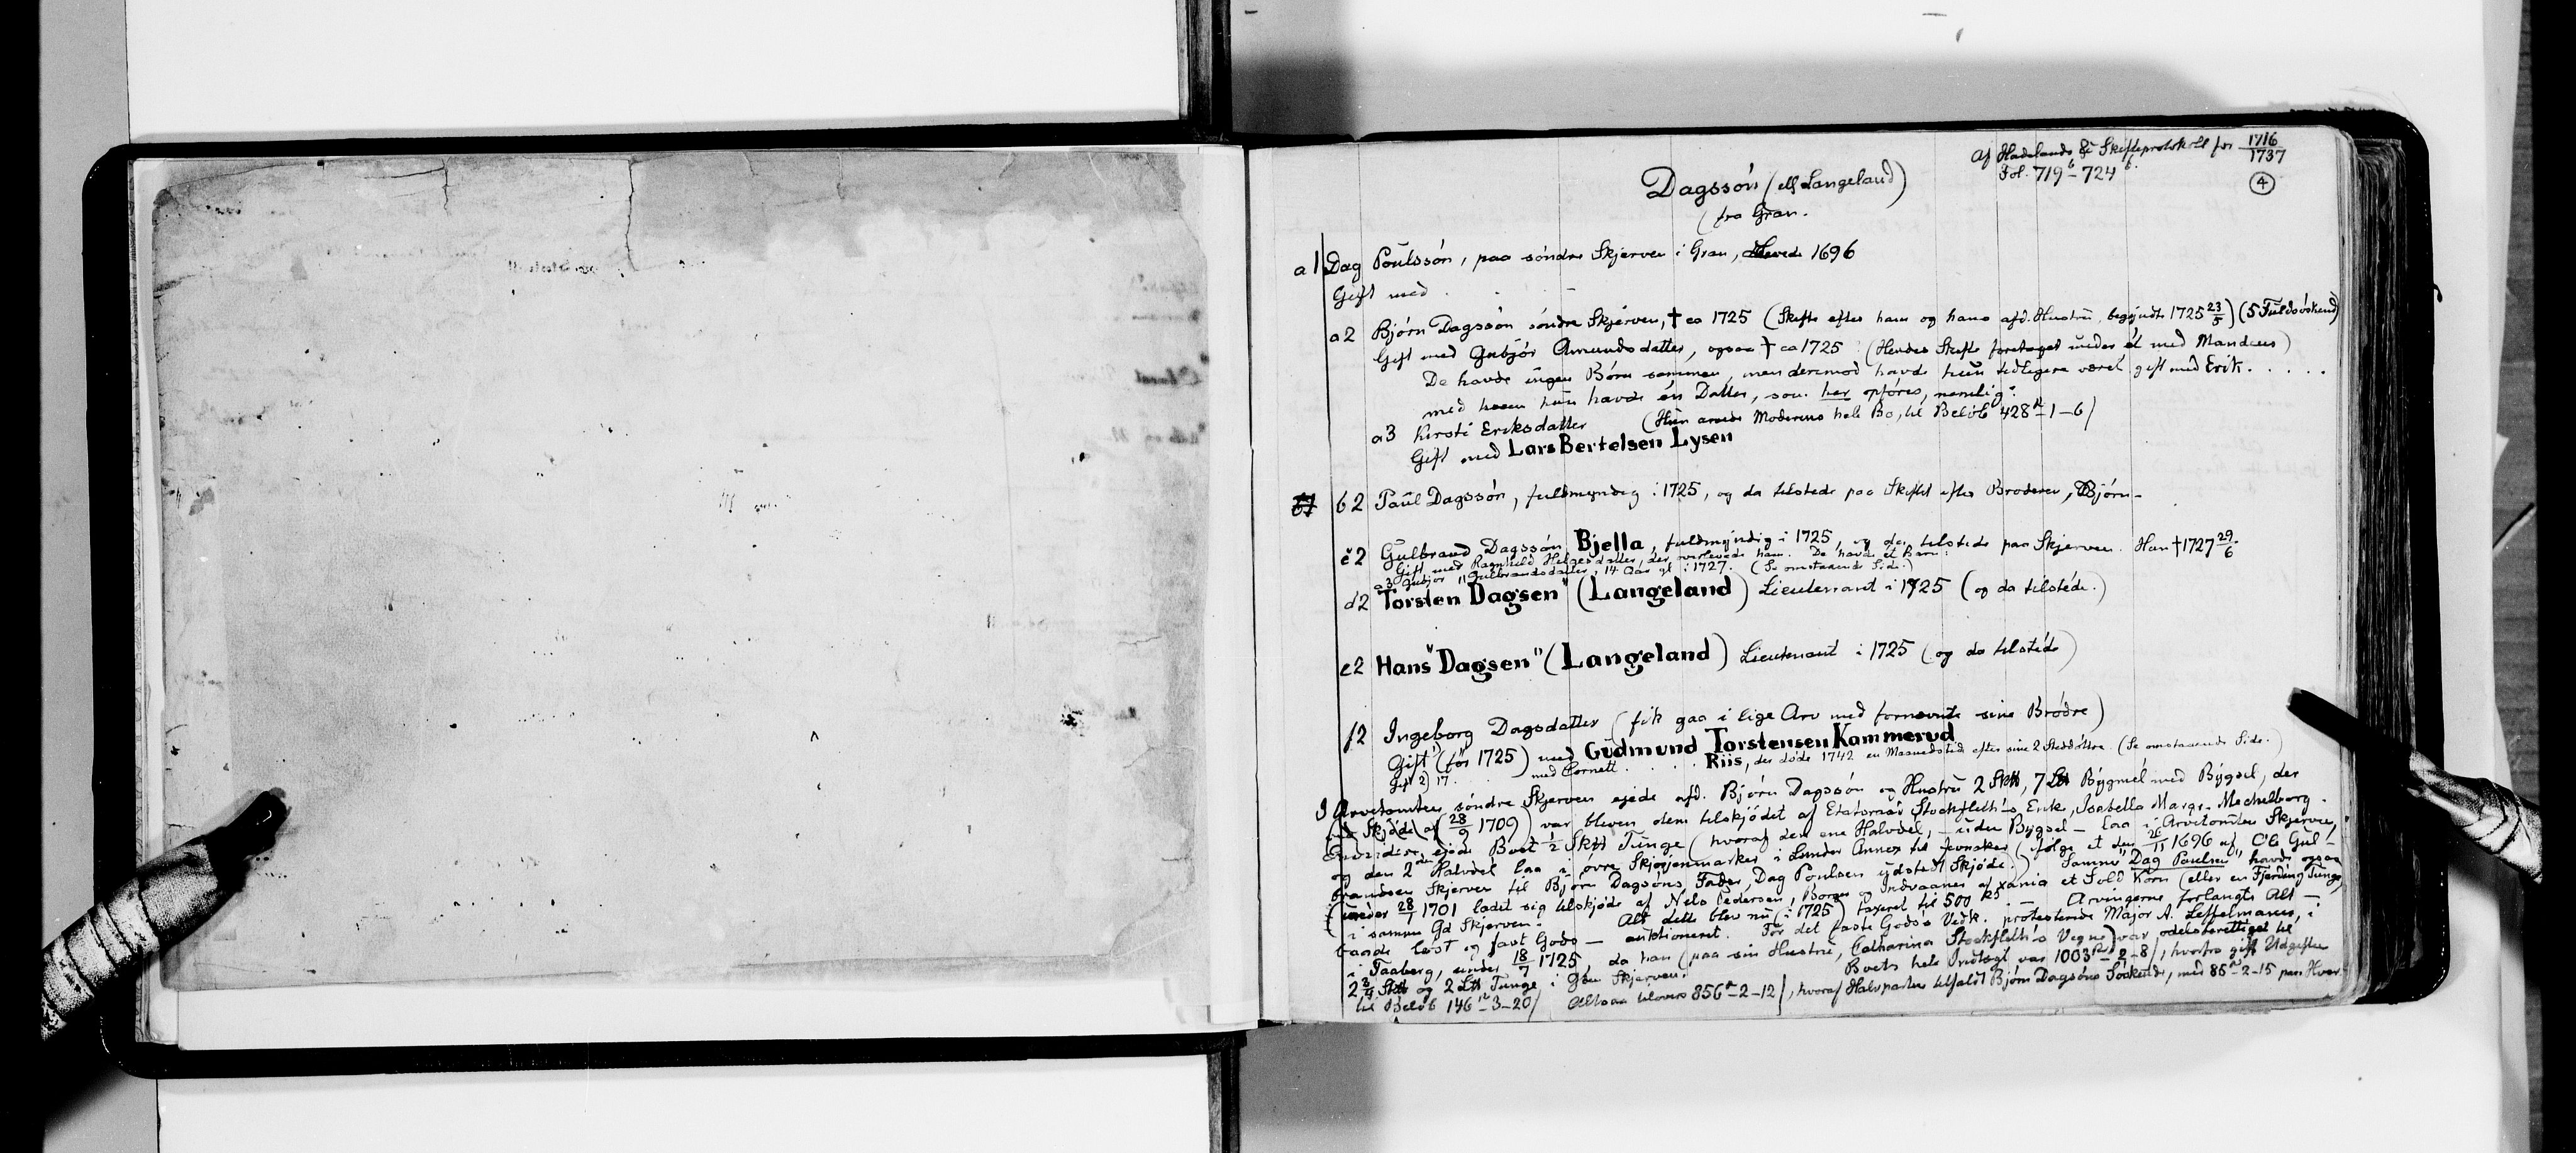 Af Hadelands & Skifteprotokoll for 1716/1737
Fol. 719b - 724b.
4
Dagssón (ell Langeland)
(fra Gran.
a1 Dag Poulssón, paa sóndre Skjerven i Gran, levede 1696
Gift med .
a2 Bjórn Dagssón sóndre Skjerven, † ca 1725 (Skifte efter ham og hans afd. Hustru, begyndte 1725 23/5) (5 Fuldsóskend)
Gift med Gubjór Amundsdatter, ogsaa † ca 1725 (Hendes Skifte foretaget under et med Mandens)
De havde ingen Børn sammen, men derimod havde hun tidligere været gift med Erik . . . . .
med hvem hun havde én Datter, som her opfóres, nemlig:
a3 Kirsti Eriksdatter (Hun arvede Moderens hele Bo, til Belób 428 R - 1 - 6/
Gift med Lars Bertelsen Lysen
b1 b2 Paul Dagssón, fuldmyndig i 1725, og da tilstede paa Skiftet efter Broderen, Bjórn -
c2 Gulbrand Dagssón Bjella, fuldmyndig i 1725, og da tilstede paa Skjerven. Han † 1727 29/6.
Gift med Ragnhild Helgesdatter, der overlevede ham. De havde et Barn:
a3 Gubjór Gulbrandsdatter, 14 Aar gl. i 1727. (Se omstaaende Side.)
d2 Torsten "Dagsen" (Langeland) Lieutenant i 1725 (og da tilstede.)
e2 Hans "Dagsen" (Langeland) Lieutenant i 1725 (og da tilstede)
f2 Ingeborg Dagsdatter (fik gaa i lige Arv med fornævnte sine Brødre)
Gift (før 1725) med Gudmund Torstensen Kammerud
Gift 2) 17. . . med Cornett . . . . Riis, der døde 1742 en Maanedstid efter sine 2 Steddóttre. (Se omstaaende Side.)
I Arvetomten sóndre Skjerven ejede afd. Bjórn Dagssón og Hustru 2 Sktt, 7 Ltt Bygmel med Bygsel, der
ved Skjóde af 28/9 1709) var bleven dem tilskjódet af Etatsraad Stockfleths Enke, Isabella Margr. Mechelborg.
Endvidere ejede Boet 1/2 Sktt Tunge (hvoraf den ene Halvdel, - uden Bygsel - laa i Arvetomten Skjerven,
og den 2den Halvdel laa i óvre Skjósjenmarker i Lunder Annex til Jevnaker (ifølge et den 26/11 1696 af Ole Gul-
brandsen Skjerven til Bjórn Dagssóns Fader, Dag Poulsen udstedt Skjóde.) Samme "Dag Paulsen" havde ogsaa
(under 28/1 1701 ladet sig tilskjóde af Nels Pedersen, Borger og Indvaaner af xania et Sold Korn (eller en Fjerding Tunge)
i samme Gd Skjerven. Alt dette blev nu (i 1725) taxeret til 500 Rd. — Arvingerne forlangte Alt -
baade lóst og fast Gods — auktioneret. For det faste Gods's Vedk. protesterede Major A. Leffelmann, i
i Faaberg, under 18/7 1725, da han (paa sin Hustru, Catharina Stockfleth's Vegne) var odelsberettiget til
2 3/4 Sktt og 2 Ltt Tunge i Gden Skjerven. Boets hele Indtægt var 1003 R - 2 - 8/, hvorfra gik Udgifter
til Belób 146 R - 3 - 20/ Altsaa tilovers 856 R - 2 - 12/, hvoraf Halvparten tilfaldt Bjórn Dagssóns Sóskende, med 85 R - 2 - 15 paa Hver.